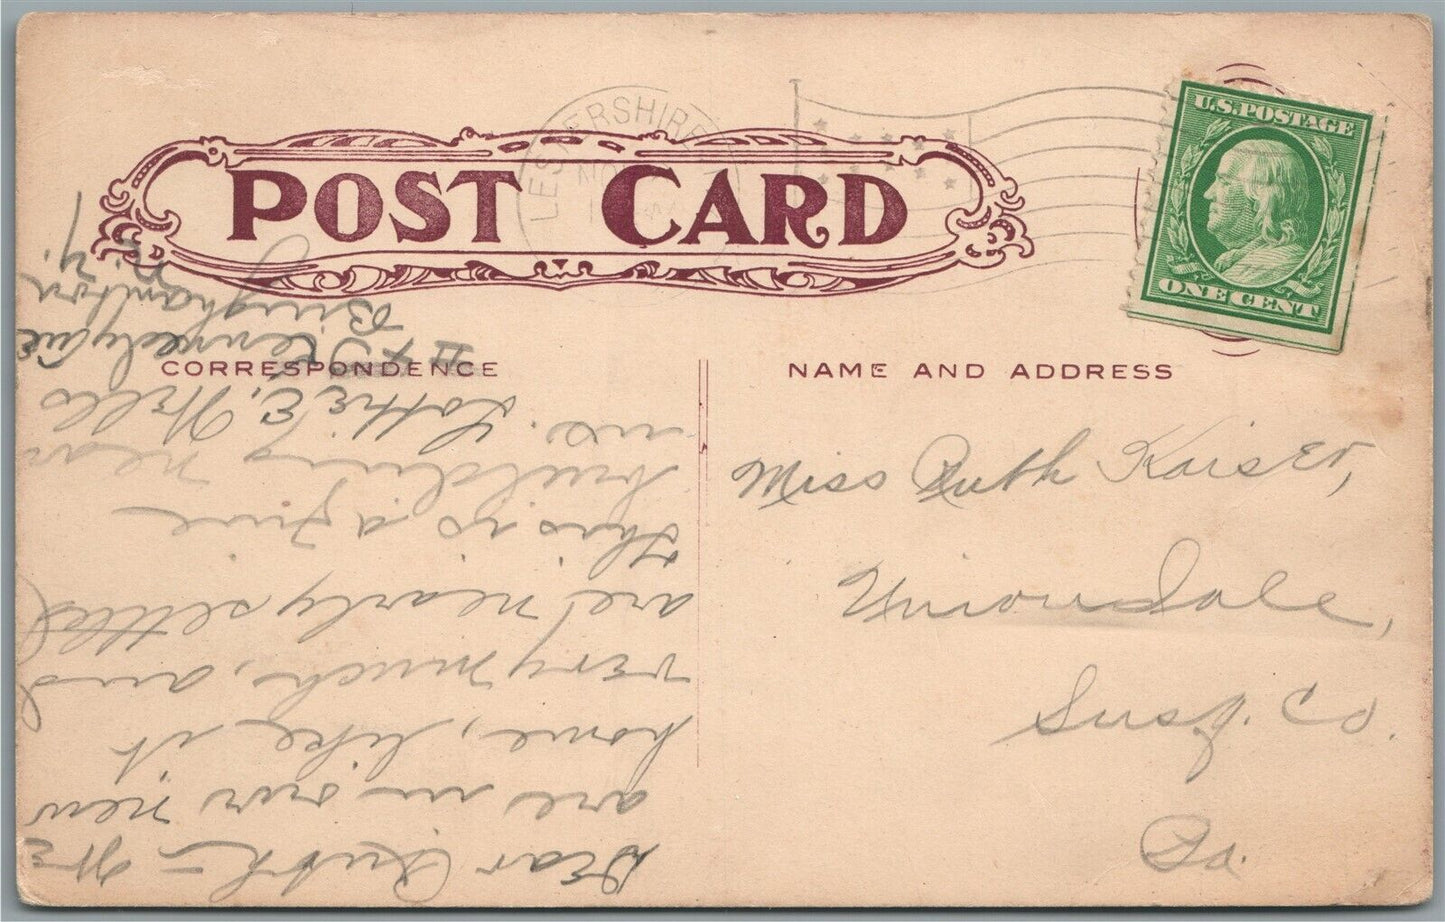 POST CARD
LESTERSHIRE
NO
U.S. POSTAGE
ONE CENT
CORRESPONDENCE
NAME AND ADDRESS
Miss Ruth Kaiser,
Uniondale,
Susq. Co.
Pa.
Dear Ruth - We
are in our new
home, like it
very much, and
are nearly settled
this is a fine
building near
us.
Lottie E. Wells
Ave
Binghamton
N.Y.